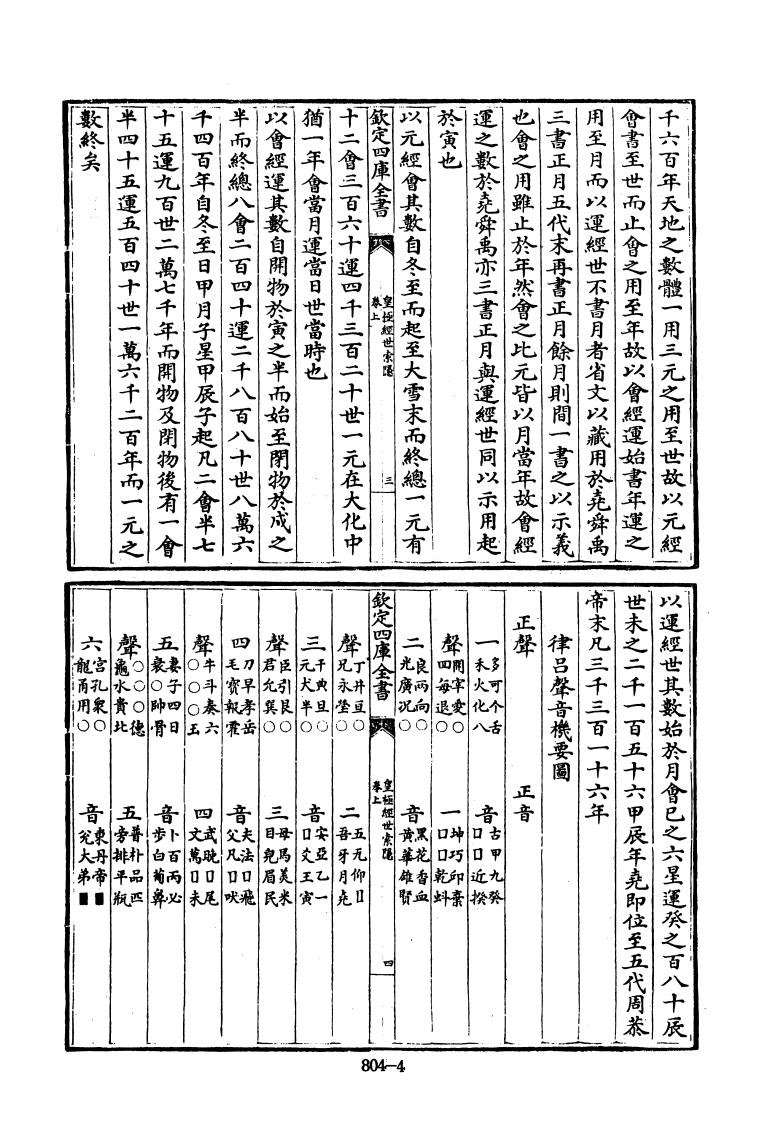 千六百年天地之數體一用三元之用至世故以元經
會書至世而止會之用至年故以會經運始書年運之
用至月而以運經世不書月者省文以藏用於堯舜禹
三書正月五代末再書正月餘月則間一書之以示義
也會之用雖止於年然會之比元皆以月當年故會經
運之數於堯舜禹亦三書正月與運經世同以示用起
於寅也
以元經會其數自冬至而起至大雪末而終總一元有
欽定四庫全書
皇極經世索隱
卷上
三
十二會三百六十運四千三百二十世一元在大化中
猶一年會當月運當日世當時也
以會經運其數自開物於寅之半而始至閉物於戌之
半而終總八會二百四十運二千八百八十世八萬六
千四百年自冬至日甲月子星甲辰子起凡二會半七
十五運九百世二萬七千年而開物及閉物後有一會
半四十五運五百四十世一萬六千二百年而一元之
數終矣
以運經世其數始於月會巳之六星運癸之百八十辰
世未之二千一百五十六甲辰年堯即位至五代周恭
帝末凡三千三百一十六年
律呂聲音機要圖
正聲 正音
一 多可个舌 音 古甲九癸
禾火化八 □□近揆
聲 開宰愛○ 一 坤巧丘棄
四每退○ □□乾蚪
二 良兩向○ 音 黑花香血
光廣況○ 黄華雄賢
欽定四庫全書
皇極經世索隱
卷上
四
聲 丁井亘○ 二 五瓦仰□
兄永瑩○ 吾牙月堯
三 千典旦○ 音 安亞乙一
元犬半○ □爻王寅
聲 臣引艮○ 三 母馬美米
君允巽○ 目皃眉民
四 刀早孝岳 音 夫法□飛
毛寳報霍 父凡□吠
聲 牛斗奏六 四 武晚□尾
○○○玉 文萬□未
五 妻子四日 音 卜百丙必
衰○帥骨 步白葡鼻
聲 ○○○德 五 普朴品匹
龜水貴北 旁排平瓶
六 宮孔衆○ 音 東丹帝■
龍甬用○ 兊大弟■
804-4